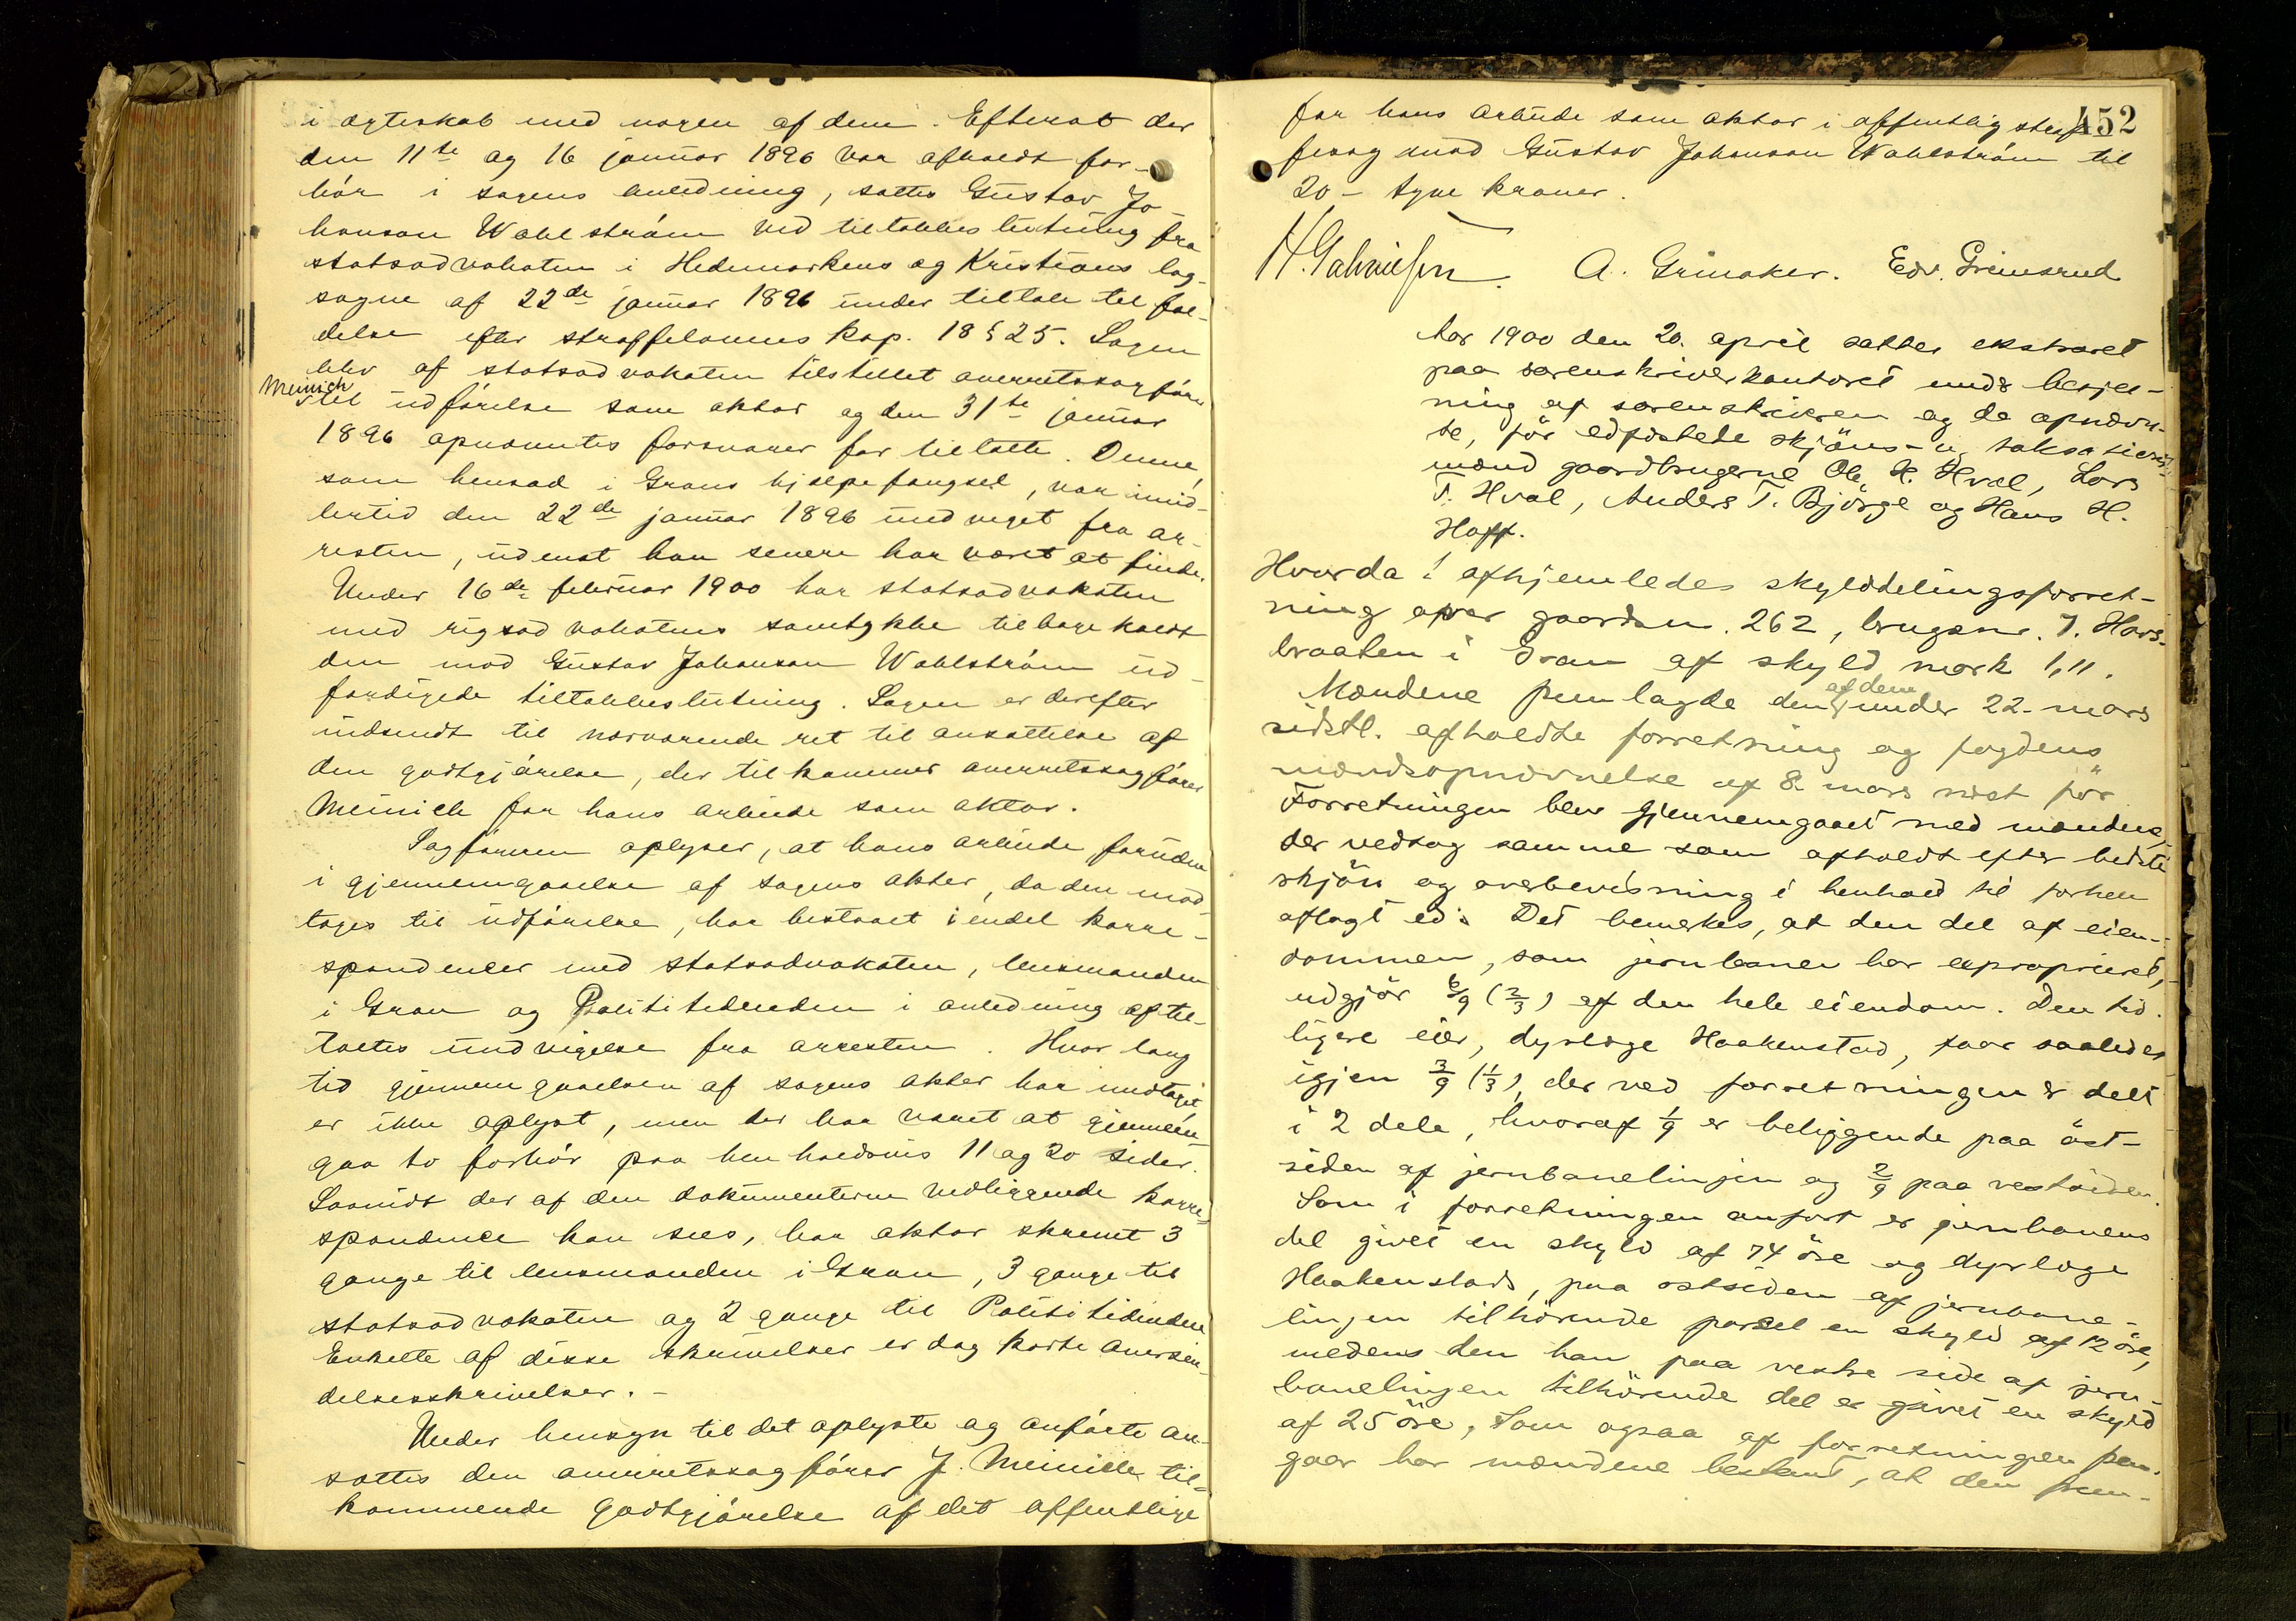 i ægteskab med nogen af dem. Efterat der
den 11te og 16 januar 1896 var afholdt for-
hör i sagens anledning, sattes Gustav Jo-
hanson Wahlström ved tiltalebeslutning fra
statsadvokaten i Hedemarkens og Kristians lag-
sogne af 22de januar 1896 under tiltale til fæl-
delse efter straffelovens kap. 18 § 25. Sagen
blev af statsadvokaten tilstillet overretssagfører
Meinich
til udförelse som aktor og den 31te januar
1896 opnævntes forsvarer for tiltalte. Denne,
som hensad i Grans hjælpefængsel, var imid-
lertid den 22de januar 1896 undveget fra ar-
resten, udenat han senere har været at finde.
Under 16de februar 1900 har statsadvokaten
med rigsadvokatens samtykke tilbagekaldt
den mod Gustav Johanson Wahlström ud-
færdigede tiltalebeslutning. Sagen er derefter
indsendt til nærværende ret til ansættelse af
den godtgjörelse, der tilkommer overretssagförer
Meinich for hans arbeide som aktor.
Sagföreren oplyser, at hans arbeide foruden
i gjennemgaaelse af sagens akter, da den mod-
toges til udförelse, har bestaaet i endel korre-
spondencer med statsadvokaten, lensmanden
i Gran og Polititidenden i anledning af til-
taltes undvigelse fra arresten. Hvor lang
tid gjennemgaaelsen af sagens akter har medtaget
er ikke oplyst, men der har været at gjennem-
gaa to forhör paa henholdsvis 11 og 20 sider.
Saavidt der af den dokumenterne vedliggende korre-
spondence kan sees, har aktor skrevet 3
gange til lensmanden i Gran, 3 gange til
statsadvokaten og 2 gange til Polititidenden
Enkelte af disse skrivelser er dog korte oversen-
delsesskrivelser. -
Under hensyn til det oplyste og anförte an-
sattes den overretssagförer J. Meinich til-
kommende godtgjörelse af det offentlige
452
for hans arbeide som aktor i offentlig straf-
fesag mod Gustav Johanson Wahlström til
20 - tyve kroner.
A. Grinaker. Edv. Grimsrud
Aar 1900 den 20. april sattes ekstraret
paa sorenskriverkontoret under betjæ-
ning af sorenskriveren og de opnævn-
te, för edfæstede skjöns- og taksations-
mænd gaardbrugerne Ole H. Hval, Lars
T. Hval, Anders T. Björge og Hans H.
Hoff.
Hvorda: afhjemledes skylddelingsforret-
ning over gaardsn. 262, brugsnr. 7. Hors-
braaten i Gran af skyld mark 1,11.
af dem
Mændene fremlagde den under 22. mars
sidstl. afholdte forretning og fogdens
mændsopnævnelse af 8. mars næst för
Forretningen blev gjennemgaaet med mændene,
der vedtog samme som afholdt efter bedste
skjön og overbevisning i henhold til forhen
aflagt ed. Det bemerkes, at den del af eien-
dommen, som jernbanen har exproprieret,
udgjör 6/9 (2/3) af den hele eiendom. Den tid-
ligere eier, dyrlæge Haakenstad, faar saaledes
igjen 3/9 (1/3), der ved forretningen er delt
i 2 dele, hvoraf 1/9 er beliggende paa öst-
siden af jernbanelinjen og 2/9 paa vestsiden.
Som i forretningen anfört er jernbanens
del givet en skyld af 74 öre og dyrlæge
Haakenstads, paa östsiden af jernbane-
linjen tilhörende parsel en skyld af 12 öre,
medens den ham paa vestre side af jern-
banelinjen tilhörende del er givet en skyld
af 25 öre, Som ogsaa af forretningen frem-
gaar har mændene bestemt, at den frem-